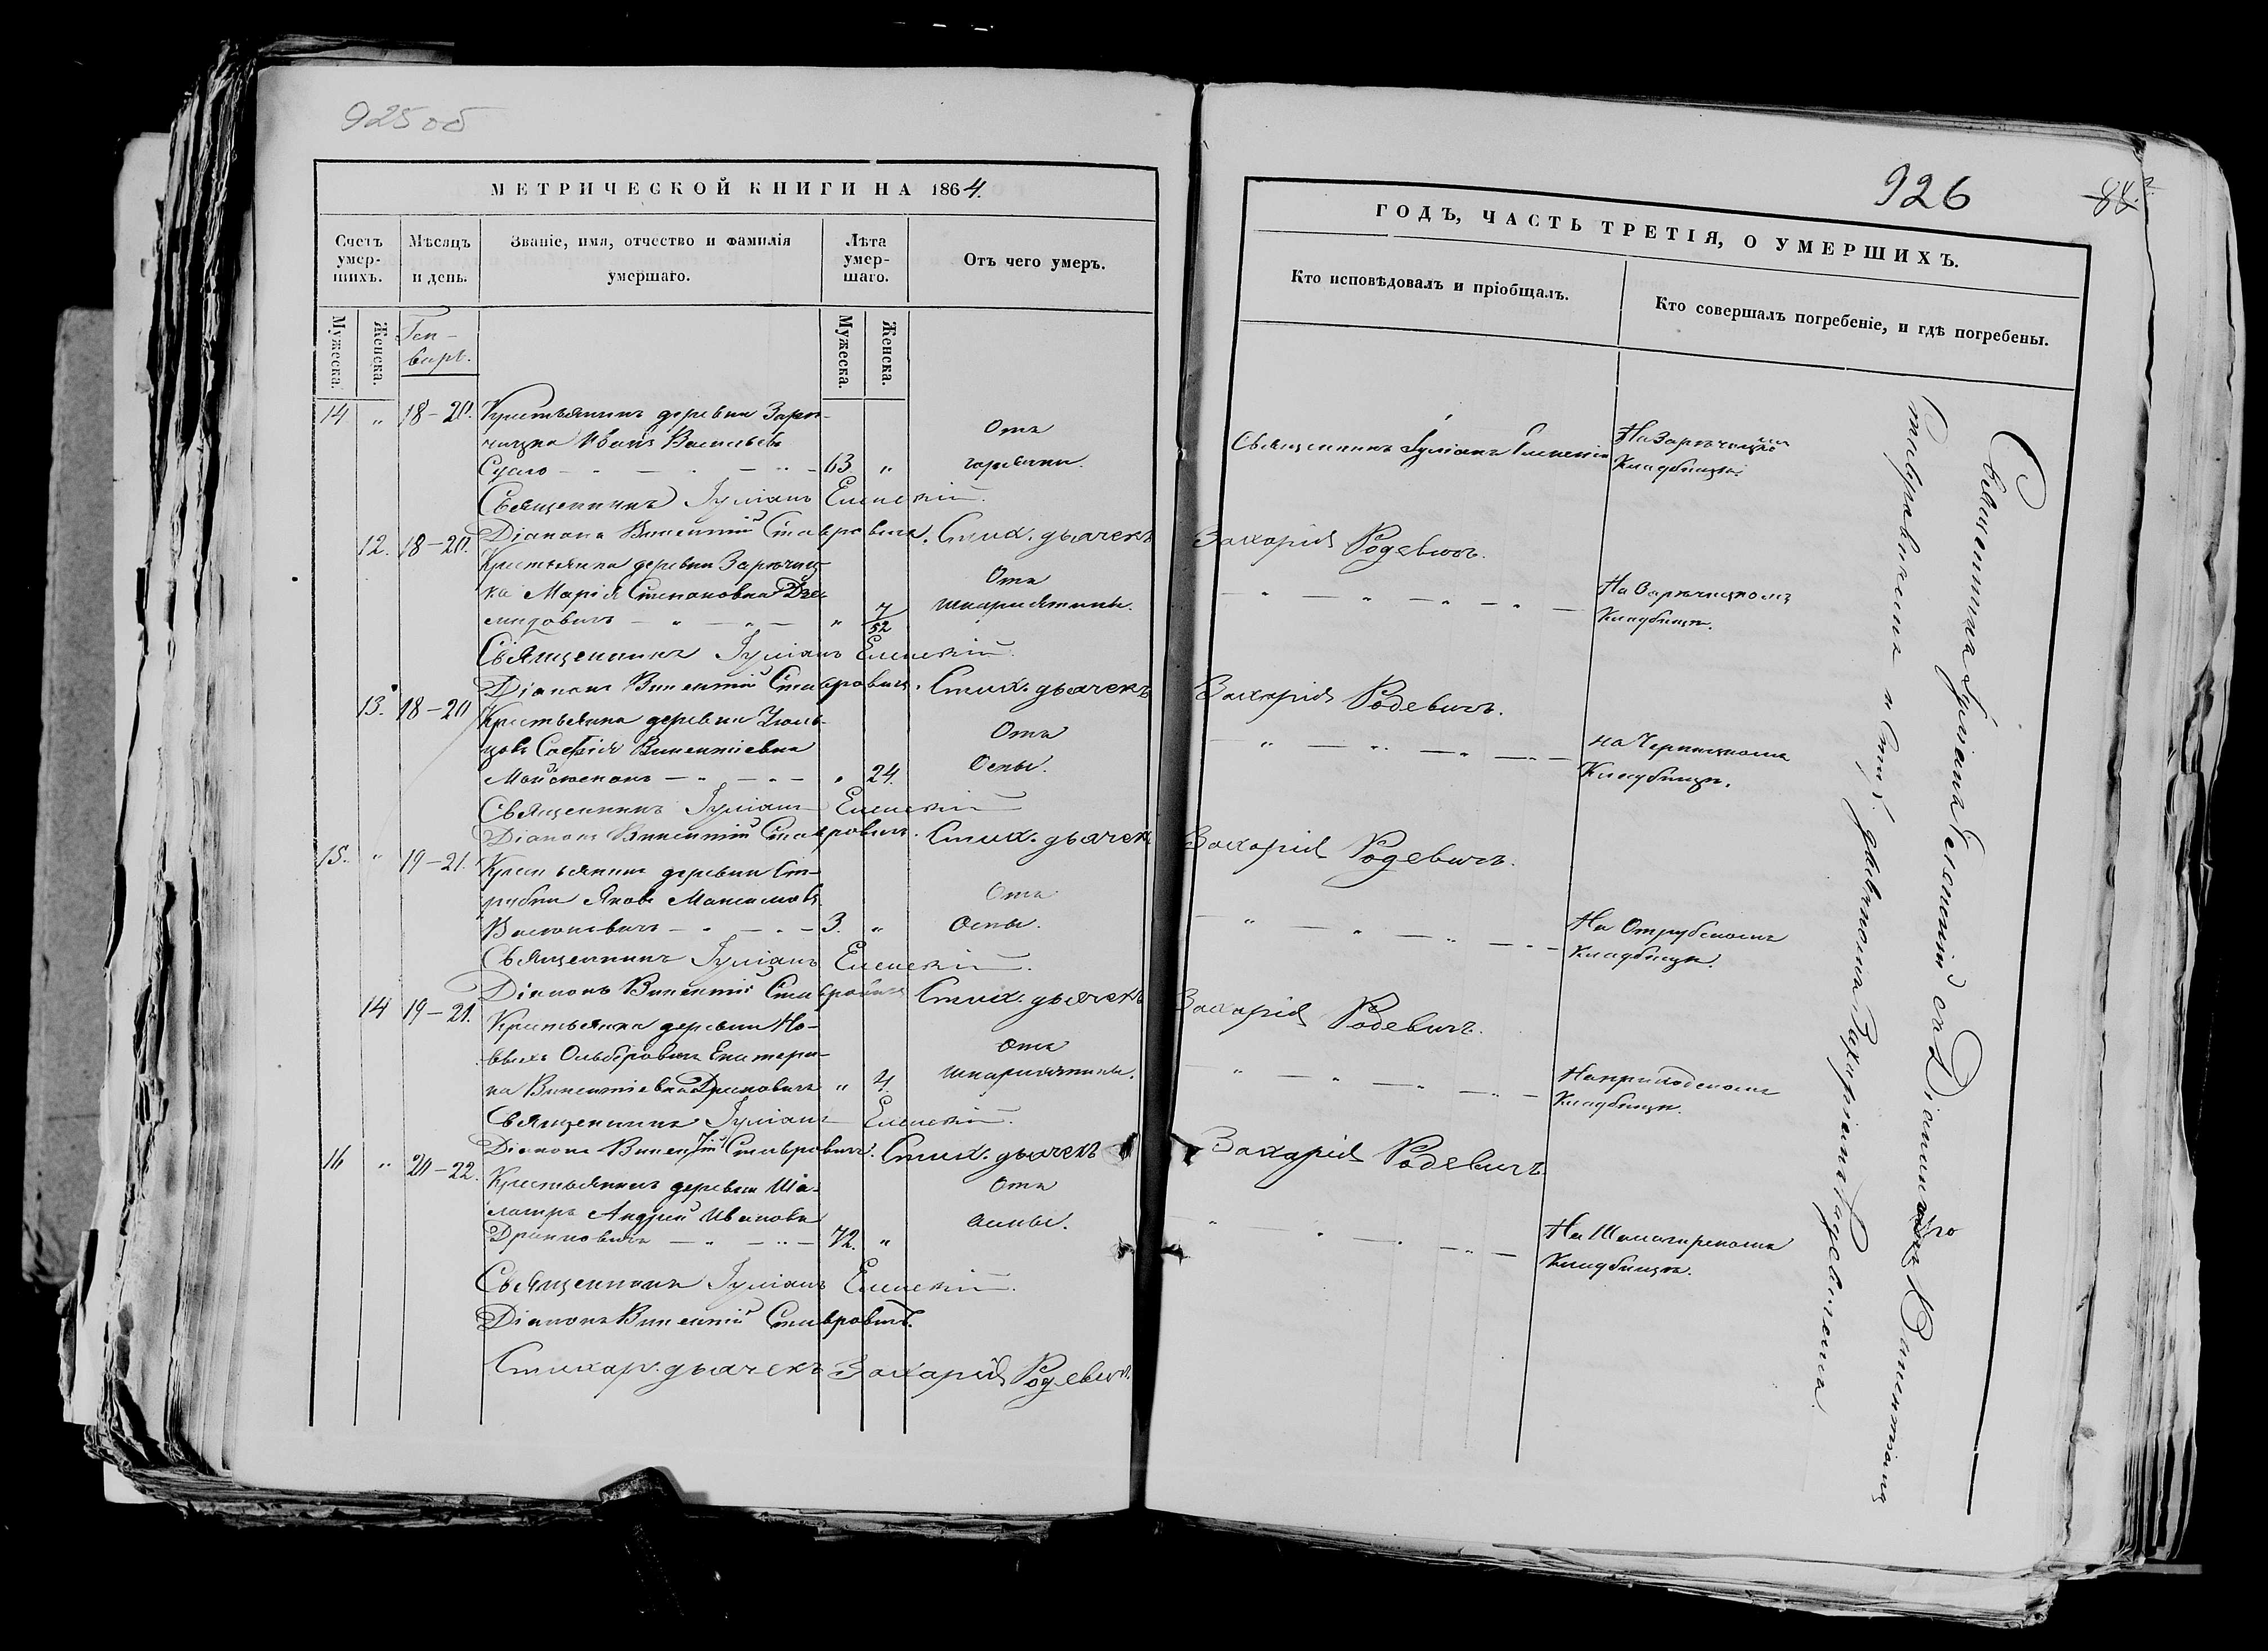 925 об
МЕТРИЧЕСКОЙ КНИГИ НА 1864.
Счетъ умер-шихъ.
Мѣсяцъ и день.
Званіе, имя, отчество и фамилія умершаго.
Лѣта умер-шаго.
Отъ чего умеръ.
Мужеска.
Женска.
Ген-
варь.
Мужеска.
Женска.
14 " 18-20. Крестьянинъ деревни Заре-
чицка Иванъ Васильевъ
Сугло 63 "
Отъ
горячки.
Священникъ Іуліанъ Еленскій.
Діаконъ Викентій Ставровичъ. Стих. дьячекъ
12. 18-20. Крестьянка деревни Заречиц-
ка Марія Степановна
" 7/52
Отъ
шкарлятины.
Священникъ Іуліанъ Еленскій.
Діаконъ Викентій Ставровичъ. Стих. дьячекъ
13. 18-20 Крестьянка деревни
Софія Викентіевна
" 24.
Отъ
Оспы.
Священникъ Іуліанъ Еленскій
Діаконъ Викентій Ставровичъ. Стих. дьячекъ
15. " 19-21. Крестьянинъ деревни От-
рубки Яковъ Максимовъ
3. "
Отъ
Оспы.
Священникъ Іуліанъ Еленскій.
Діаконъ Викентій Ставровичъ Стих. дьячекъ
14 19-21. Крестьянка деревни Но-
выхъ Екатери-
на Викентіевна " 4.
Отъ
шкарлятины.
Священникъ Іуліанъ Еленскій.
Діаконъ Викентій Ставровичъ. Стих. дьячекъ
16 " 20-22. Крестьянинъ деревни Ша-
Андрей Ивановъ
72. "
Отъ
Священникъ Іуліанъ Еленскій.
Діаконъ Викентій Ставровичъ.
Стихар. дьячекъ Захарій Родевичъ.
926
ГОДЪ, ЧАСТЬ ТРЕТІЯ, О УМЕРШИХЪ.
Кто исповѣдовалъ и пріобщалъ.
Кто совершалъ погребеніе, и гдѣ погребены.
Священникъ Іуліанъ Еленскій
На Заречицкомъ
Кладбищѣ.
Захарій Родевичъ.
На Заречицкомъ
Кладбищѣ.
Захарій Родевичъ.
на
Кладбищѣ.
Захарій Родевичъ.
На Отрубскомъ
Кладбищѣ.
Захарій Родевичъ.
На приходскомъ
Кладбищѣ.
Захарій Родевичъ.
На
Кладбищѣ.
Священникъ Іуліанъ Еленскій съ Діакономъ Викентіемъ
Ставровичемъ и Стих. дьячкомъ Захаріемъ Родевичемъ.